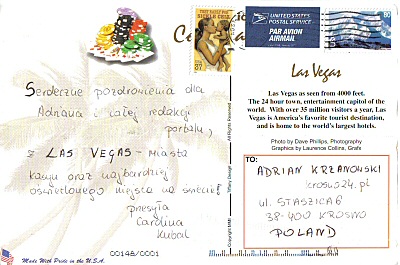 TEST EARLY FOR
SICKLE CELL
37
UNITED STATES
POSTAL SERVICE
PAR AVION
AIRMAIL
80
Serdeczne pozdrowienia dla
Adriana i całej redakcji
portalu,
z LAS VEGAS - miasta
kasyn oraz najbardziej
oświetlonego miejsca na świecie
przesyła
Carolina
Kubal
Made With Pride in the U.S.A.
00148/0001
Las Vegas
Las Vegas as seen from 4000 feet.
The 24 hour town, entertainment capitol of the
world. With over 35 million visitors a year, Las
Vegas is America's favorite tourist destination,
and is home to the world's largest hotels.
Photo by Dave Phillips, Photography
Graphics by Laurence Collins, Grafx
TO:
ADRIAN KRZANOWSKI
krosno24.pl
ul. STASZICA 6
38-400 KROSNO
POLAND